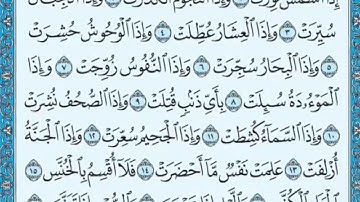 إِذَا الشَّمْسُ كُوِّرَتْ
سُيِّرَتْ ٣ وَإِذَا الْعِشَارُ عُطِّلَتْ ٤ وَإِذَا الْوُحُوشُ حُشِرَتْ
٥ وَإِذَا الْبِحَارُ سُجِّرَتْ ٦ وَإِذَا النُّفُوسُ زُوِّجَتْ ٧ وَإِذَا
الْمَوْءُۥدَةُ سُئِلَتْ ٨ بِأَيِّ ذَنۢبٍ قُتِلَتْ ٩ وَإِذَا الصُّحُفُ نُشِرَتْ
١٠ وَإِذَا السَّمَآءُ كُشِطَتْ ١١ وَإِذَا الْجَحِيمُ سُعِّرَتْ ١٢ وَإِذَا الْجَنَّةُ
أُزْلِفَتْ ١٣ عَلِمَتْ نَفْسٌ مَّآ أَحْضَرَتْ ١٤ فَلَآ أُقْسِمُ بِالْخُنَّسِ ١٥